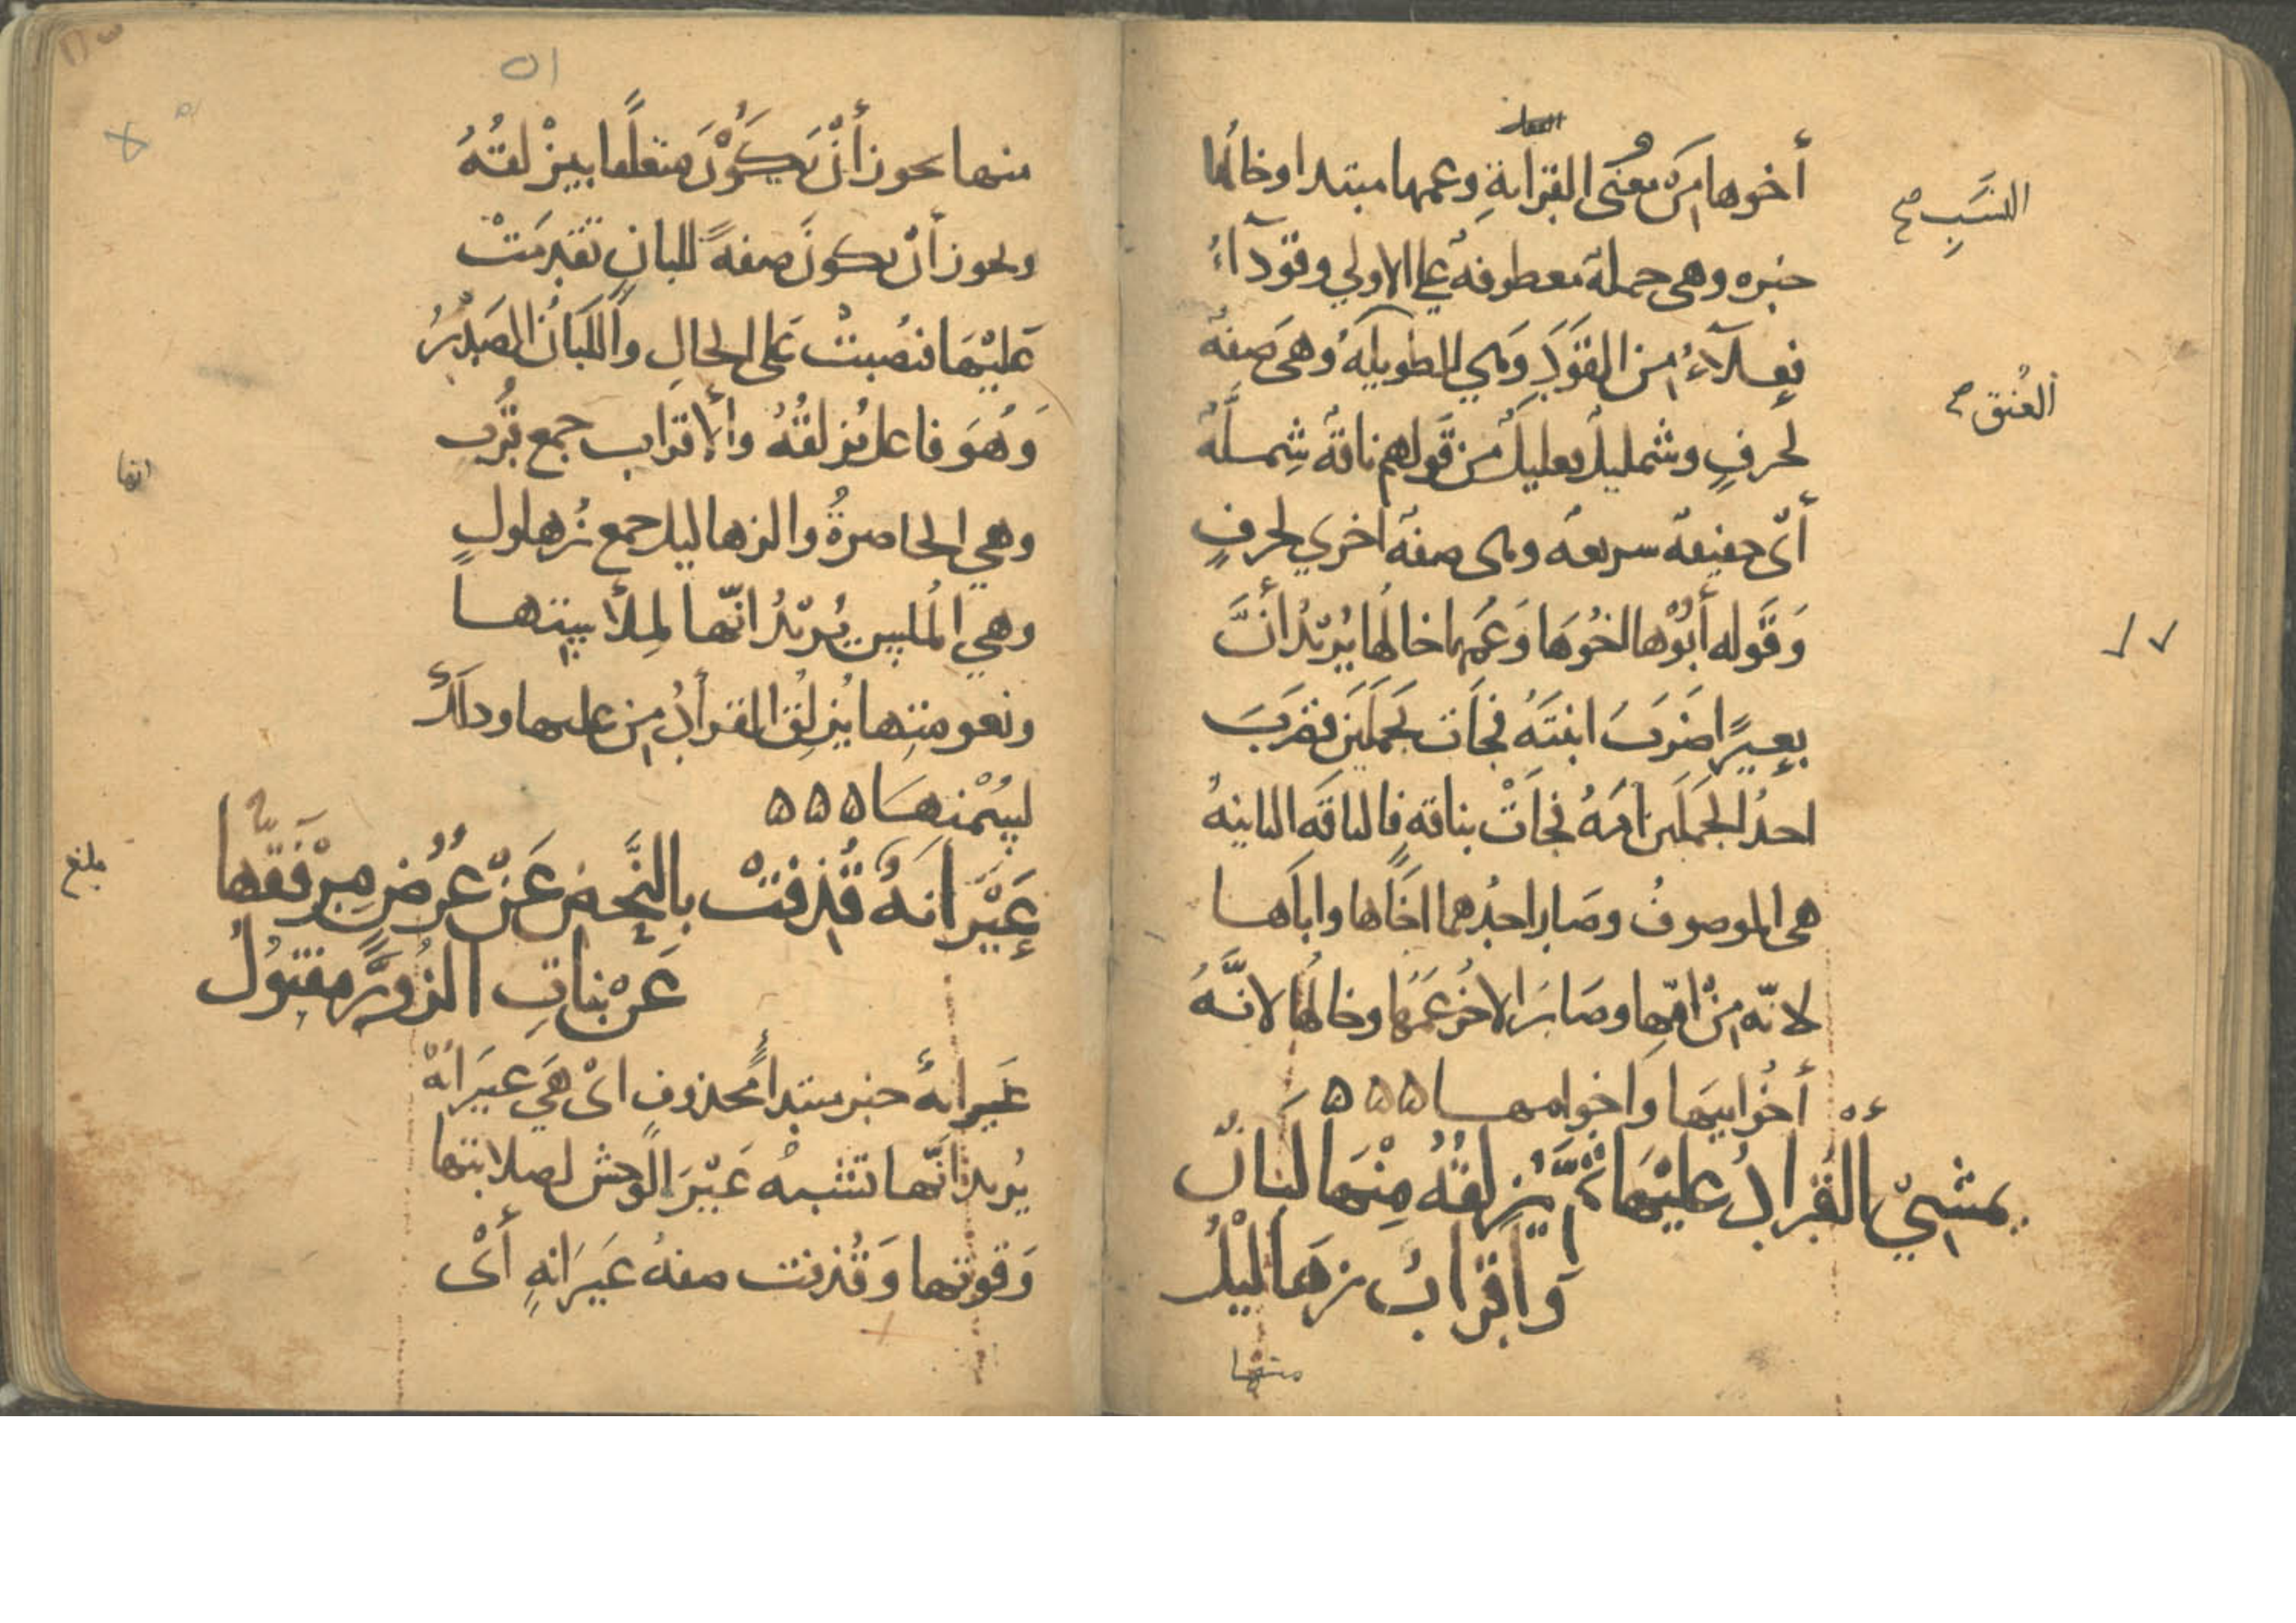 أخوها من معنى القرابةِ وعمها مبتدا وخالُها
النسَبِ صح
خبره وهى جملة معطوفة على الاولي وقودآءُ
فعلآءُ من القَوَدِ وهي الطويلة وهىَ صَفةُ
العُنق صح
لحرفٍ وشمليلُ فعليلُ من قَولهم ناقة شِملَّةُ
أىّ خفيفة سريعة وهى صفة اخري لحرفٍ
وَقَوله أبُوْها اخُوَها وَعَمها خالُها يُريْدُ أنَّ
بعيرًا ضَرَبَ ابنَتَهُ فجَاَت بَجملَينَ فضرَبَ
احدُ الجَملَين امَهُ فجاَتْ بناقةٍ فالناقَه الثانيةُ
هى الموصوفُ وصَار احدُهما اخَاها واباَها
لانّه منْ امّها وصَارَ الاخُر عَمَها وخالُها لانَّهُ
أخُو ابيَها وَاخوامهـا ۵۵۵
يمشيّ القُرادُ عليْهَا ثمَّ يُزلقُهُ مِنْهَا لَبَانٌ
وَأقرابٌ زهَاليْلُ
منها
٥١
منها يجوز أنْ يَكُوْنَ متعلقًا بيزْلقُهُ
ويجوز أنْ يكونَ صفةً للبانٍ تقدمَتْ
عَليْهَا فنصُبتْ عَلى الحالِ واللَبَانُ الصَدْرُ
وَهُوَ فاعل يُزلقُهُ والأقراب جمع قُرْبٍ
وهي الخاصرةُ والزهاليل جمع زُهلولٍ
وهي المُلسِ يُريْدُ انّها لِملأ بيتهـا
ونعومتِها يُزلِقُ القرادُ من عليها وذلكَ
ليسُمْنِهَـا ۵۵۵
عَيْرَانةٌ قُذِفتْ بالنَّحضِ عَنْ عُرُضٍ مِرْفَقُها
عَنْ بناتِ الزُورِ مفتوُلُ
بلغ
عَيرانةٌ خبر مبتدأٍ محذوفٍ اىْ هَي عيَرانة
يُريدُ انّها تشبهُ عَيْرَ الوحش لصلابتها
وَقوتها وَقُذفت صفةُ عَيَرَانةٍ أىْ